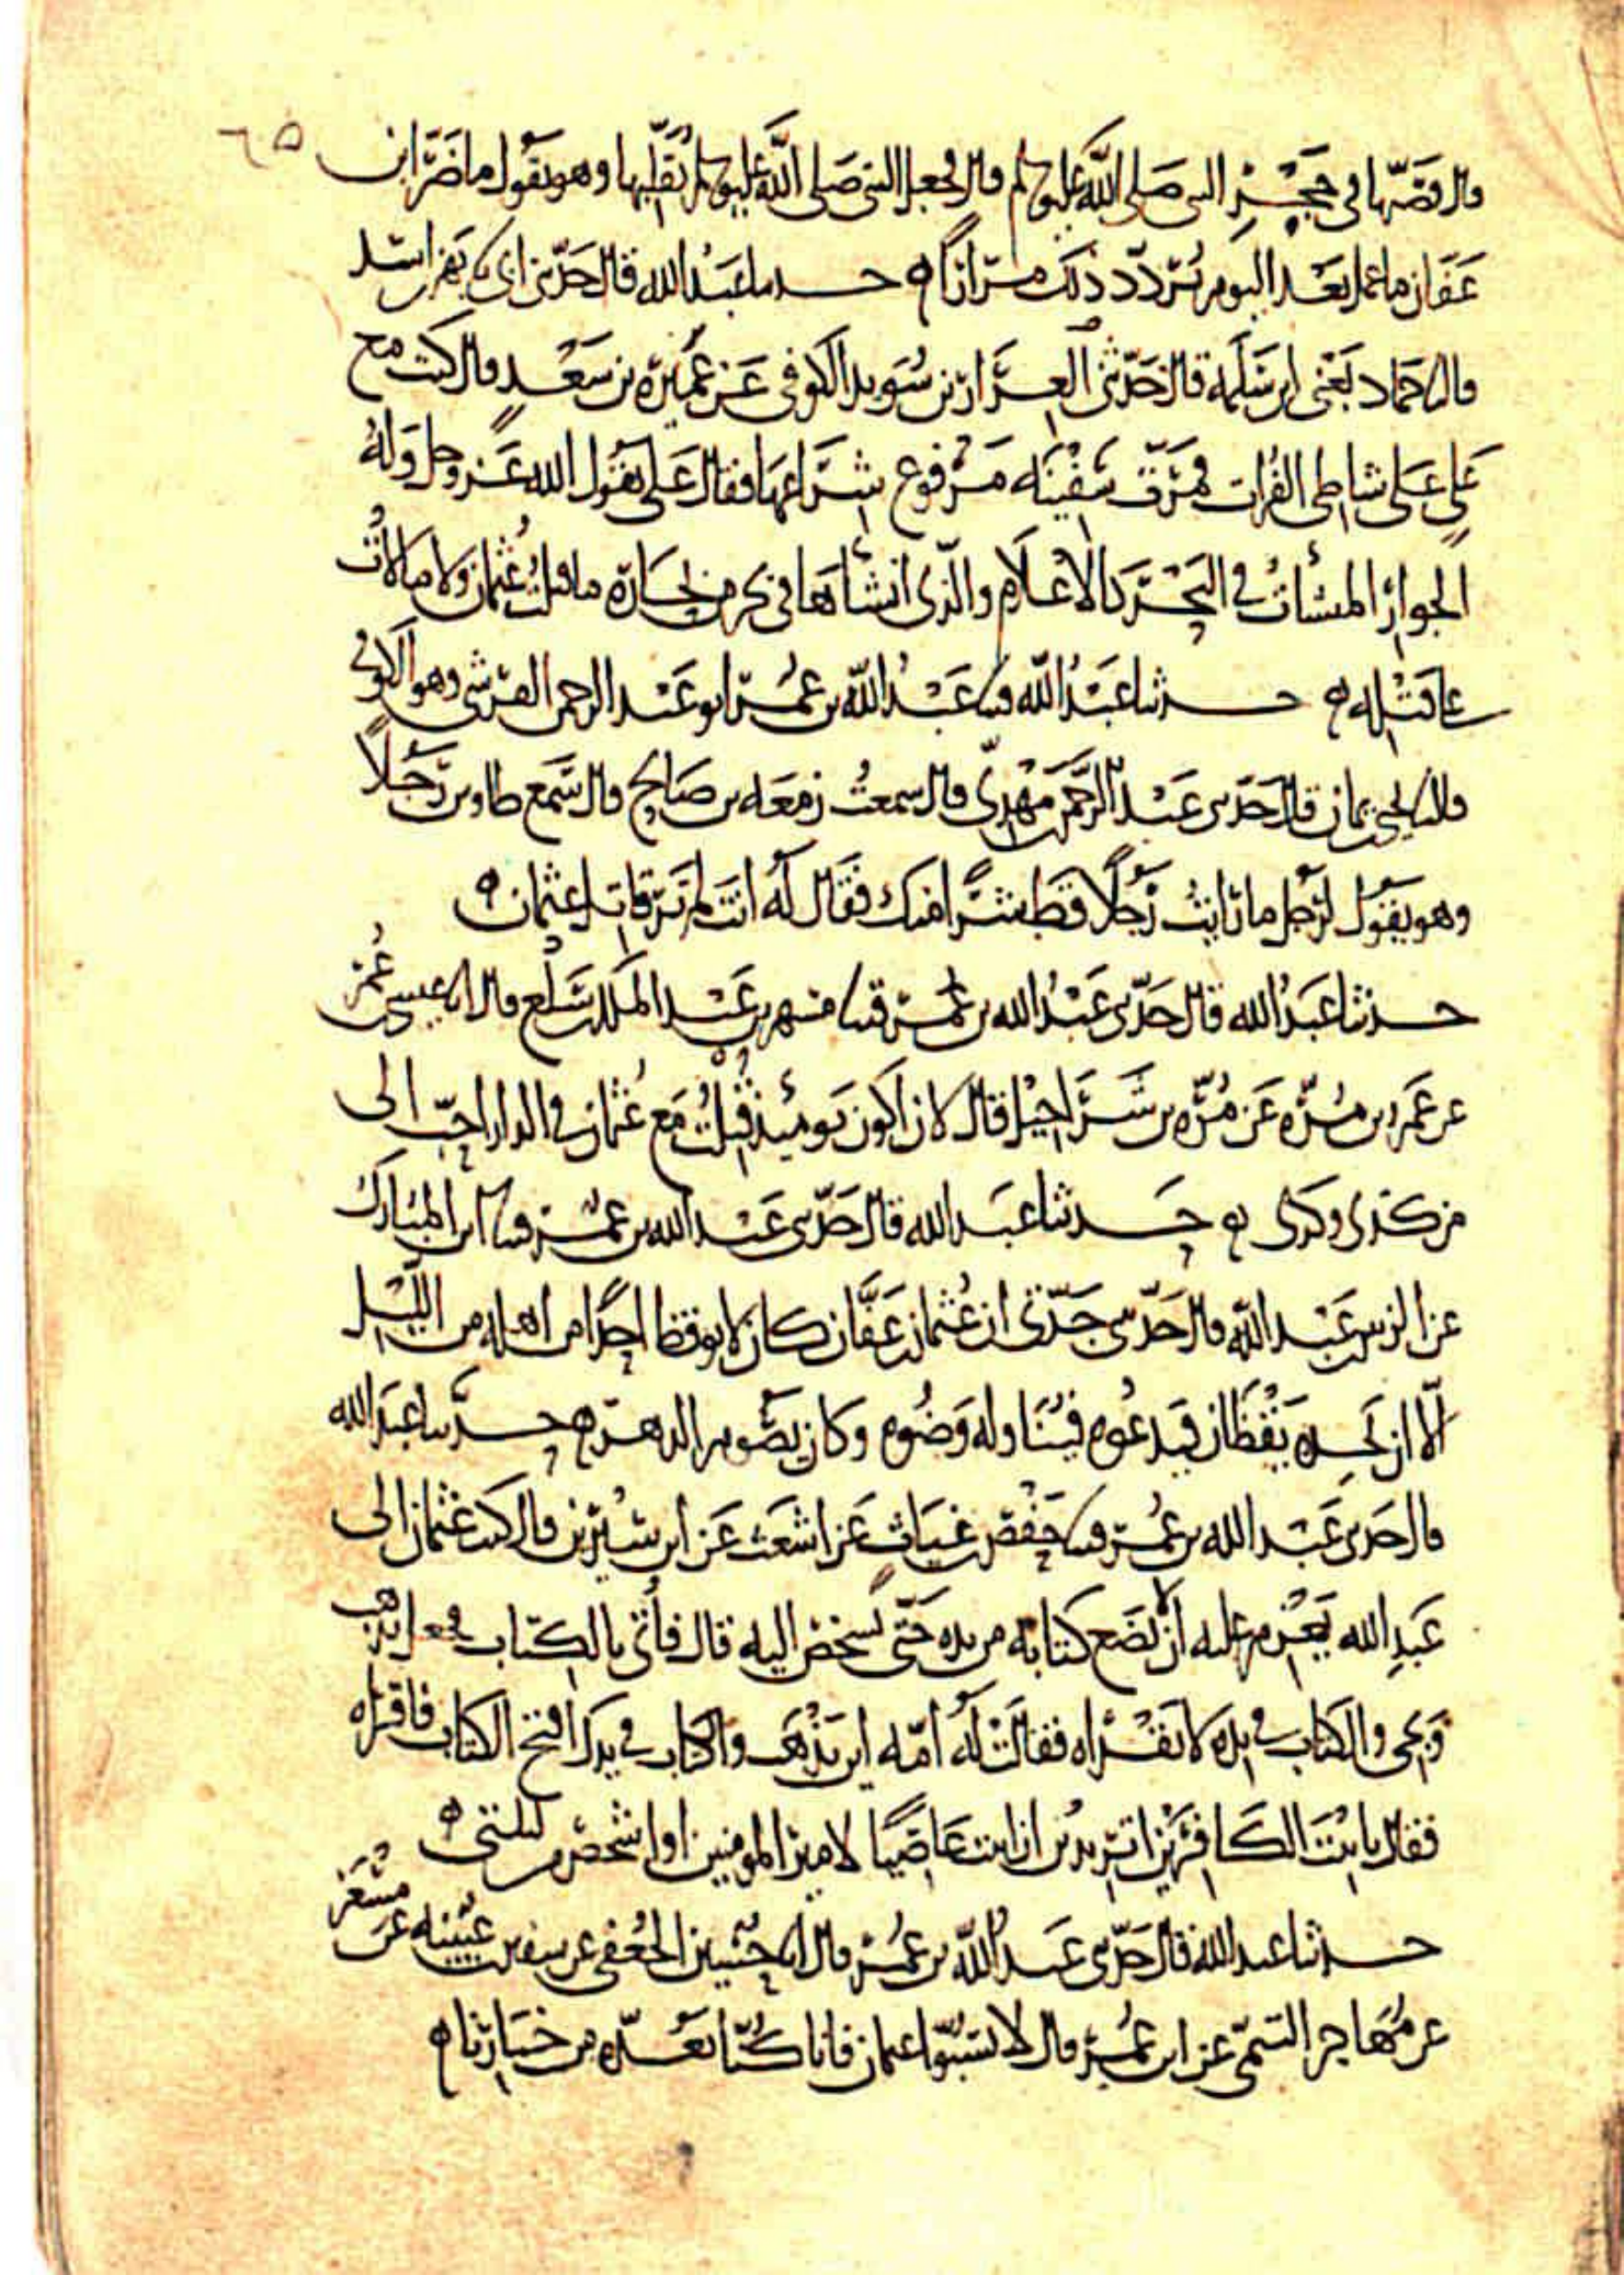 ٦٥
قال فصبها في حجر النبي صلى الله عليه وسلم قال فجعل النبي صلى الله عليه وسلم يقلبها وهو يقول ما ضر ابن
عفان ما عمل بعد اليوم يردد ذلك مرارا ه حدثنا عبد الله قال حدثني ابي بهز بن اسد
قال حماد يعني ابن سلمة قال حدثني العيزار بن سويد الكوفي عن عميرة بن سعد قال كنت مع
علي على شاطئ الفرات فمرت سفينة مرفوع شراعها فقال علي يقول الله عز وجل وله
الجوار المنشات في البحر كالاعلام والذي انشاها في بحر من بحاره ما قتلت عثمان ولا مالات
على قتله ه حدثنا عبد الله عبد الله بن عمر ابو عبد الرحمن القرشي وهو الكوفي
يحيى بن يمان قال حدثني عبد الرحمن مهدي قال سمعت زمعة بن صالح قال سمع طاوس رجلا
وهو يقول لرجل ما رايت رجلا قط شرا منك فقال له انت لم تر قاتل عثمان ه
حدثنا عبد الله قال حدثني عبد الله بن عمر مسهر بن عبد الملك بن سلع قال عيسى بن عمر
عن عمرو بن مرة عن مرة بن شراحيل قال لان اكون يومئذ قتلت مع عثمان في الدار احب الي
من كذى وكذى ه حدثنا عبد الله قال حدثني عبد الله بن عمر ابن المبارك
عن الزبير بن عبد الله قال حدثني جدتي ان عثمان بن عفان كان لا يوقظ احدا من اهله من الليل
الا ان يجده يقظان فيدعوه فيناوله وضوه وكان يصوم الدهر ه حدثنا عبد الله
قال حدثني عبد الله بن عمر حفص بن غياث عن اشعث عن ابن سيرين قال كتب عثمان الى
عبد الله يعزم عليه ان لا يضع كتابه من يده حتى يشخص اليه قال فاتي بالكتاب فجعل يذهب
ويجي والكتاب في يده لا يقراه فقالت له امه اين تذهب والكتاب في يدك افتح الكتاب فاقراه
فقال يا بنت الكافرين اتريدين ان ابيت عاصيا لامير المومنين او اشخص من ليلتي ه
حدثنا عبد الله قال حدثني عبد الله بن عمر قال حسين الجعفي عن سفين بن عيينة عن مسعر
عن مهاجر التيمي عن ابن عمر قال لا تسبوا عثمان فانا كنا نعده من خيارنا ه